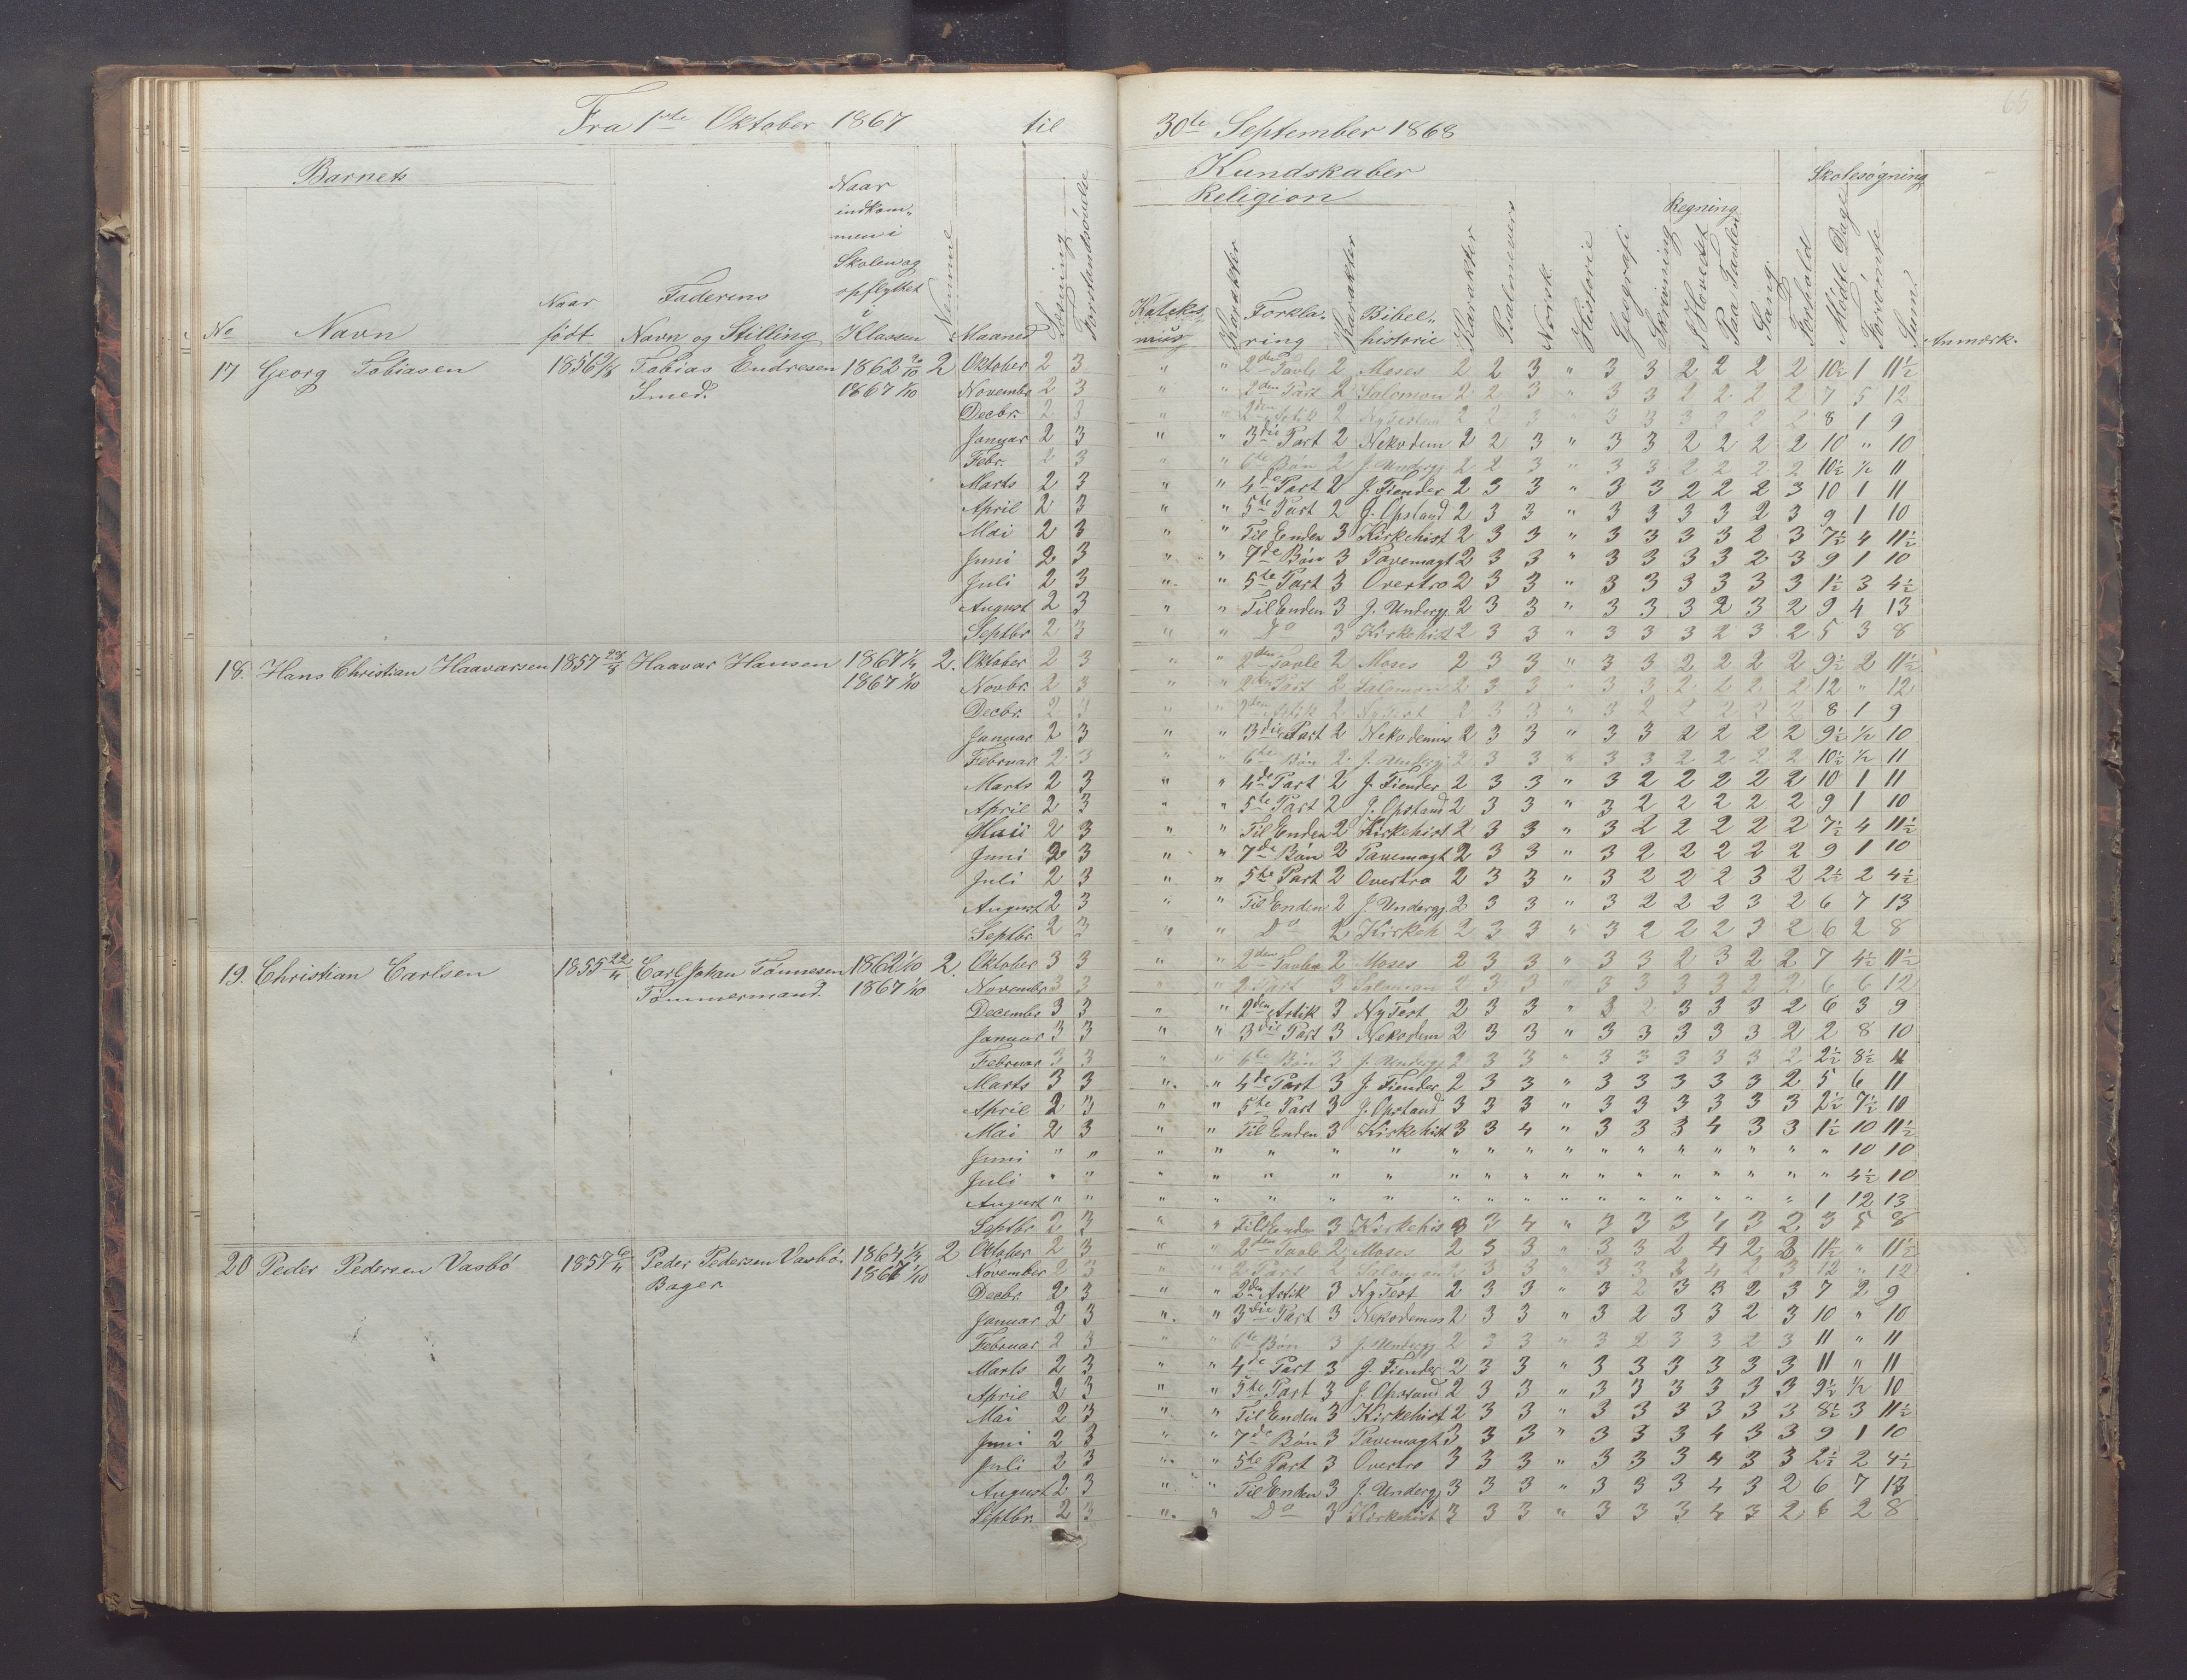 Fra 1ste Oktober 1867 til 30te September 1868
Barnets
Kundskaber
Skolesøgning
Religion
Regning
No Navn Naar født Faderens Navn og Stilling Naar indkommen i Skolen og opflyttet i Klassen Nemme Maaned Læsning Forstandsøvelse Katekismus Karakter Forklaring Karakter Bibelhistorie Karakter Psalmevers Norsk Historie Geografi Skrivning I Hovedet Paa Tavlen Sang Forhold Mødte Dage Forsømte Sum Anmærk.
17 Georg Tobiasen 1856 Tobias Endresen 1862 20/10 2 Oktober 2 3 " " 2den Tavle 2 Moses 2 2 3 " 3 3 2 2 2 2 10½ 1 11½
Smed. 1867 1/10 Novembr 2 3 " " 2den Part 2 Salomon 2 2 3 " 3 3 2 2 2 2 7 5 12
Decbr. 2 3 " " 2den Artik 2 Ny Testam 2 2 3 " 3 3 3 2 2 2 8 1 9
Januar 2 3 " " 3die Part 2 Nekodem 2 2 3 " 3 3 2 2 2 2 10 " 10
Febr. 2 3 " " 6te Bøn 2 J. Undergj 2 2 3 " 3 3 2 2 2 2 10½ ½ 11
Marts 2 3 " " 4de Part 2 J. Fiender 2 3 3 " 3 3 2 2 2 3 10 1 11
April 2 3 " " 5te Part 2 J. Opstand 2 3 3 " 3 3 3 3 2 3 9 1 10
Mai 2 3 " " Til Enden 3 Kirkehist 2 3 3 " 3 3 3 3 2 3 7½ 4 11½
Juni 2 3 " " 7de Bøn 3 Pavemagt 2 3 3 " 3 3 3 3 2 3 9 1 10
Juli 2 3 " " 5te Part 3 Overtro 2 3 3 " 3 3 3 3 3 3 1½ 3 4½
August 2 3 " " Til Enden 3 J. Undergj. 2 3 3 " 3 3 3 2 3 2 9 4 13
Septbr 2 3 " " Do 3 Kirkehist 2 3 3 " 3 3 3 2 3 2 5 3 8
18. Hans Christian Haavarsen 1857 Haavar Hansen 1867 2. Oktober 2 3 " " 2den Tavle 2 Moses 2 3 3 " 3 3 2 2 2 2 9½ 2 11½
1867 1/10 Novbr. 2 3 " " 2den Part 2 Salomon 2 3 3 " 3 3 2 2 2 2 12 " 12
Decbr. 2 3 " " 2den Artik 2 Ny Test 2 3 3 " 3 2 2 2 2 2 8 1 9
Januar 2 3 " " 3die Part 2 Nekodemus 2 3 3 " 3 3 2 2 2 2 9½ ½ 10
Februar 2 3 " " 6te Bøn 2 J. Undergj 2 3 3 " 3 3 2 2 2 2 10½ ½ 11
Marts 2 3 " " 4de Part 2 J. Fiender 2 3 3 " 3 2 2 2 2 2 10 1 11
April 2 3 " " 5te Part 2 J. Opstand 2 3 3 " 3 2 2 2 2 2 9 1 10
Maii 2 3 " " Til Enden 2 Kirkehist 2 3 3 " 3 2 2 2 2 2 7½ 4 11½
Juni 2 3 " " 7de Bøn 2 Pavemagt 2 3 3 " 3 2 2 2 2 2 9 1 10
Juli 2 3 " " 5te Part 2 Overtro 2 3 3 " 3 2 2 2 3 2 2½ 2 4½
August 2 3 " " Til Enden 2 J. Undergj. 2 3 3 " 3 2 2 2 3 2 6 7 13
Septbr. 2 3 " " Do 2 Kirkeh 2 3 3 " 3 2 2 2 3 2 6 2 8
19. Christian Carlsen 1855 22/11 Carl Johan Tønnesen 1862 1/10 2. Oktober 3 3 " " 2den Tavle 2 Moses 2 3 3 " 3 3 2 3 2 2 7 4½ 11½
Tømmermand. 1867 1/10 Novembr 3 3 " " 2 Part 3 Salomon 2 3 3 " 3 3 3 3 2 2 6 6 12
Decembr 3 3 " " 2den Artik 3 Ny Test 2 3 3 " 3 2 3 3 3 2 6 3 9
Januar 3 3 " " 3die Part 3 Nekodem 2 3 3 " 3 3 3 3 3 2 2 8 10
Februar 3 3 " " 6te Bøn 3 J. Undergj 2 3 3 " 3 3 3 3 3 2 2½ 8½ 11
Marts 3 3 " " 4de Part 3 J. Fiender 2 3 3 " 3 3 3 3 3 2 5 6 11
April 2 3 " " 5te Part 3 J. Opstand 3 3 3 " 3 3 3 3 3 3 2½ 7½ 10
Mai 2 3 " " Til Enden 3 Kirkehist 3 3 4 " 3 3 3 4 3 3 1½ 10 11½
Juni " " " " " " " " " " " " " " " " " " " 10 10
Juli " " " " " " " " " " " " " " " " " " " 4½ 10
August " " " " " " " " " " " " " " " " " " 1 12 13
Septbr. 2 3 " " Til Enden 3 Kirkehis 3 3 4 " 3 3 3 4 3 2 3 5 8
20 Peder Pedersen Vasbø 1857 6/11 Peder Pedersen Vasbø. 1864 2 Oktober 2 3 " " 2den Tavle 2 Moses 2 3 3 " 3 3 2 4 2 3 11½ " 11½
Bager 1867 1/10 November 2 3 " " 2 Part 2 Salomon 2 3 3 " 3 3 3 4 2 3 12 " 12
Decbr. 2 3 " " 2den Artik 3 Ny Test 2 3 3 " 3 2 3 3 2 3 7 2 9
Januar 2 3 " " 3die Part 3 Nekodemus 2 3 3 " 3 2 3 3 2 3 10 " 10
Februar 2 3 " " 6te Bøn 3 J. Undergj 2 3 3 " 3 2 3 3 2 3 11 " 11
Marts 2 3 " " 4de Part 3 J. Fiender 2 3 3 " 3 3 3 3 3 3 11 " 11
April 2 3 " " 5te Part 3 J. Opstand 2 3 3 " 3 3 3 3 3 3 9½ ½ 10
Mai 2 3 " " Til Enden 3 Kirkehist 2 3 3 " 3 3 3 3 3 3 8½ 3 11½
Juni 2 3 " " 7de Bøn 3 Pavemagt 3 3 3 " 3 3 3 4 3 3 9 1 10
Juli 2 3 " " 5te Part 3 Overtro 3 3 3 " 3 3 3 4 3 3 2½ 2 4½
August 2 3 " " Til Enden 3 J. Undergj 3 3 3 " 3 3 3 4 3 2 6 7 13
Septbr. 2 3 " " Do 3 Kirkehist 3 3 3 " 3 3 3 4 3 2 6 2 8